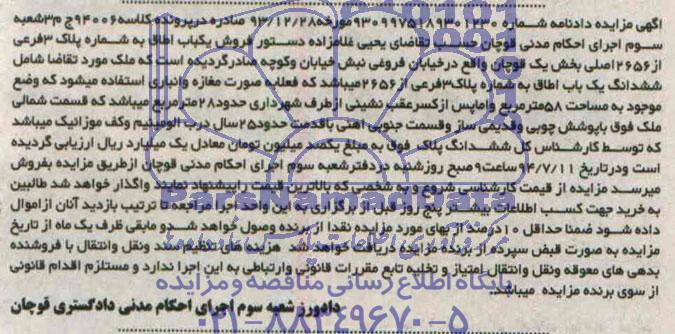 آگهی مزایده دادنامه شماره ۹۳۰۹۹۷۵۱۸۹۳۰۱۲۳۰ مورخه ۹۳/۱۲/۲۸ صادره درپرونده کلاسه ۹۴۰۰۶ ج م۳ شعبه
سوم اجرای احکام مدنی قوچان حسب تقاضای یحیی غلامزاده دستور فروش یکباب اطاق به شماره پلاک ۳فرعی
از۲۶۵۶اصلی بخش یک قوچان واقع درخیابان فروغی نبش خیابان وکوچه صادرگردیده است که ملک مورد تقاضا شامل
ششدانگ یک باب اطاق به شماره پلاک۳فرعی از۲۶۵۶میباشد که فعلابه صورت مغازه وانباری استفاده میشود که وضع
موجود به مساحت ۵۸مترمربع واماپس ازکسرعقب نشینی ازطرف شهرداری حدود۲۸مترمربع میباشد که قسمت شمالی
ملک فوق باپوشش چوبی وقدیمی ساز وقسمت جنوبی آهنی باقدمت حدود۲۵سال درب الومینیم وکف موزائیک میباشد
که توسط کارشناس کل ششدانگ پلاک فوق به مبلغ یکصد میلیون تومان معادل یک میلیارد ریال ارزیابی گردیده
است ودرتاریخ ۹۴/۷/۱۱ساعت۹صبح روزشنبه دردفترشعبه سوم اجرای احکام مدنی قوچان ازطریق مزایده بفروش
میرسد مزایده از قیمت کارشناسی شروع و به شخصی که بالاترین قیمت راپیشنهاد نمایند واگذار خواهد شد طالبین
به خرید جهت کسب اطلاعات بیشتر پنج روز قبل از برگزاری به این واحد اجرا مراجعه تا ترتیب بازدید آنان ازاموال
داده شود ضمنا حداقل ۱۰درصد از بهای مورد مزایده نقدا از برنده وصول خواهد شد و مابقی ظرف یک ماه از تاریخ
مزایده به صورت قبض سپرده از برنده مزایده دریافت خواهد شد هزینه های تنظیم سند ونقل وانتقال با فروشنده
بدهی های معوقه ونقل وانتقال امتیاز و تخلیه تابع مقررات قانونی وارتباطی به این اجرا ندارد و مستلزم اقدام قانونی
از سوی برنده مزایده میباشد.
دادورز شعبه سوم اجرای احکام مدنی دادگستری قوچان
ParsNamadData
پایگاه اطلاع رسانی مناقصه ومزایده
۰۲۱-۸۸۳۴۹۶۷۰-۵